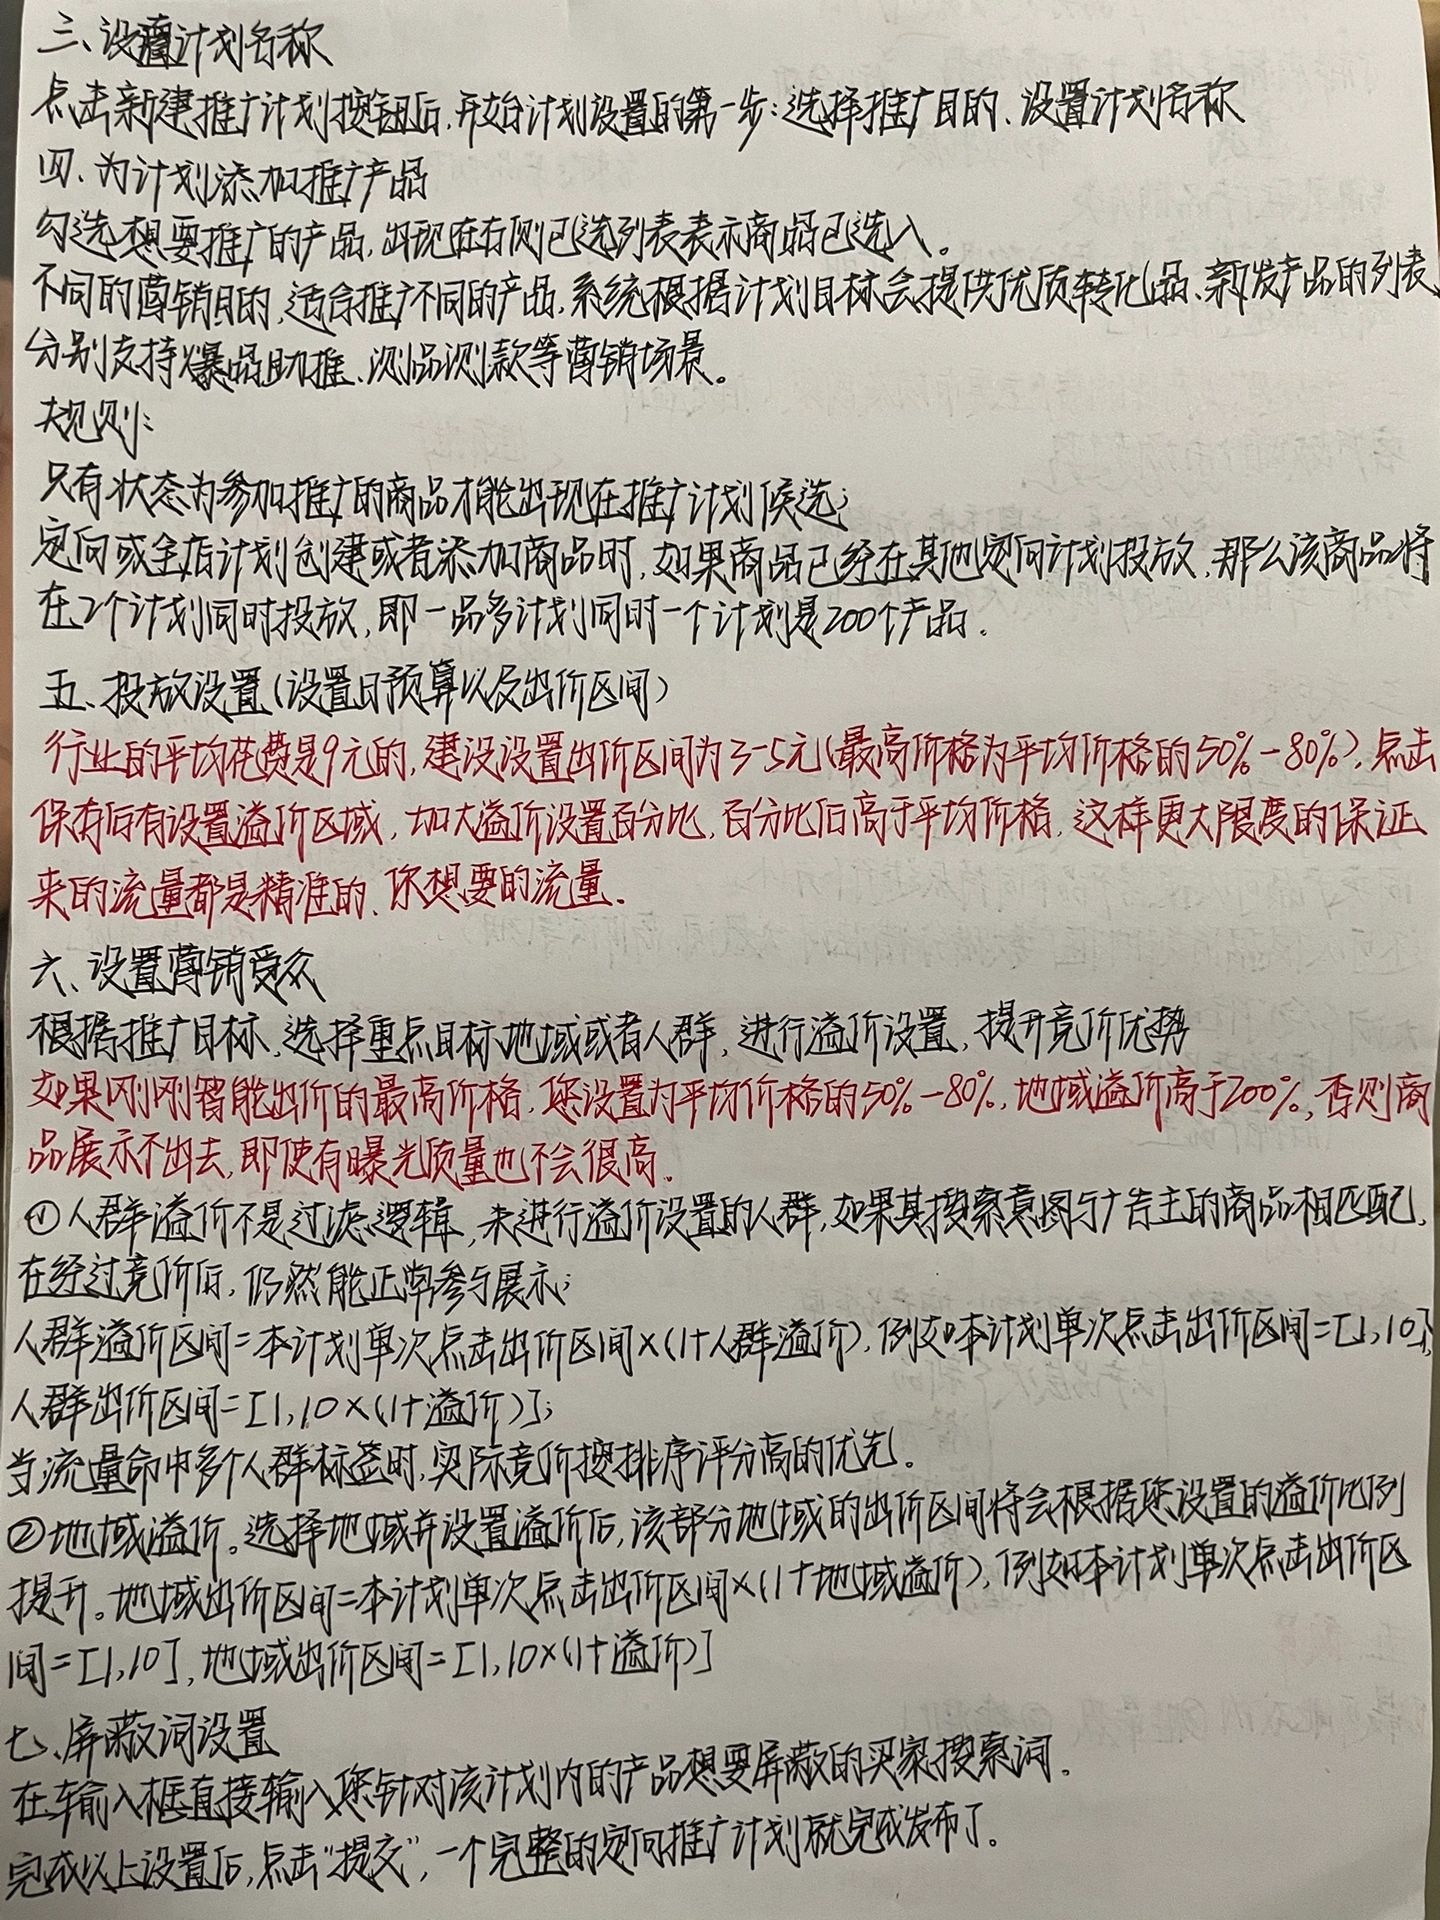 三、设置计划名称
点击新建推广计划按钮后,开始计划设置的第一步:选择推广目的、设置计划名称
四、为计划添加推广产品
勾选想要推广的产品,出现在右侧已选列表表示商品已选入。
不同的营销目的,适合推广不同的产品,系统根据计划目标会提供优质转化品、新发产品的列表,
分别支持爆品助推、测品测款等营销场景。
规则:
只有状态为参加推广的商品才能出现在推广计划候选;
定向或全店计划创建或者添加商品时,如果商品已经在其他定向计划投放,那么该商品将
在2个计划同时投放,即一品多计划同时一个计划是200个产品.
五、投放设置(设置日预算以及出价区间)
行业的平均花费是9元的,建设设置出价区间为3-5元(最高价格为平均价格的50%-80%),点击
保存后有设置溢价区域,加大溢价设置百分比,百分比后高于平均价格,这样更大限度的保证
来的流量都是精准的、你想要的流量.
六、设置营销受众
根据推广目标,选择重点目标地域或者人群,进行溢价设置,提升竞价优势
如果刚刚智能出价的最高价格,您设置为平均价格的50%-80%,地域溢价高于200%,否则商
品展示不出去,即使有曝光质量也不会很高.
①人群溢价不是过滤逻辑,未进行溢价设置的人群,如果其搜索意图与广告主的商品相匹配,
在经过竞价后,仍然能正常参与展示;
人群溢价区间=本计划单次点击出价区间×(1+人群溢价),例如本计划单次点击出价区间=[1,10],
人群出价区间=[1,10×(1+溢价)];
当流量命中多个人群标签时,实际竞价按排序评分高的优先。
②地域溢价。选择地域并设置溢价后,该部分地域的出价区间将会根据您设置的溢价比例
提升。地域出价区间=本计划单次点击出价区间×(1+地域溢价),例如本计划单次点击出价区
间=[1,10],地域出价区间=[1,10×(1+溢价)]
七、屏蔽词设置
在输入框直接输入您针对该计划内的产品想要屏蔽的买家搜索词.
完成以上设置后,点击"提交",一个完整的定向推广计划就完成发布了。